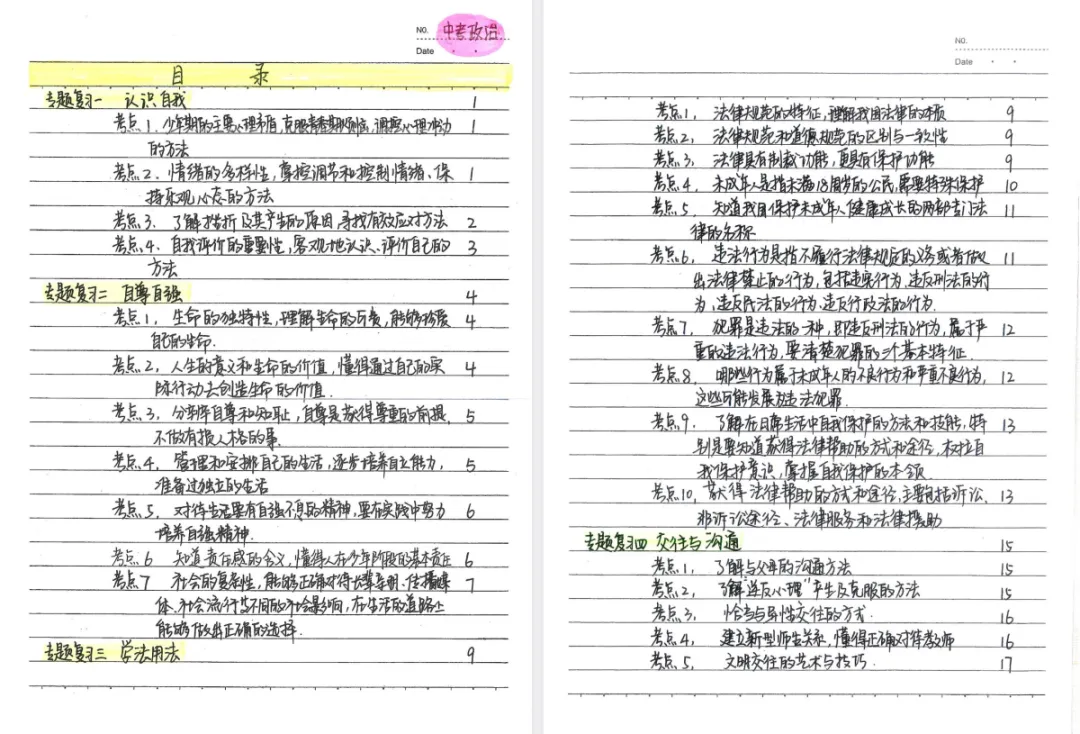 NO.
中考政治
Date
目 录
专题复习一 认识自我 1
考点1、少年期的主要心理矛盾,克服青春期烦恼,调适心理冲动 1
的方法
考点2、情绪的多样性,掌控调节和控制情绪、保 1
持乐观心态的方法
考点3、了解挫折及其产生的原因,寻找有效应对方法 2
考点4、自我评价的重要性,客观地认识、评价自己的 3
方法
专题复习二 自尊自强 4
考点1、生命的独特性,理解生命的可贵,能够珍爱 4
自己的生命.
考点2、人生的意义和生命的价值,懂得通过自己的实 4
际行动去创造生命的价值.
考点3、分辨自尊和知耻,自尊是获得尊重的前提, 5
不做有损人格的事.
考点4、管理和安排自己的生活,逐步培养自立能力, 5
准备过独立的生活
考点5、对待生活要有自强不息的精神,要在实践中努力 6
培养自强精神.
考点6 知道责任感的含义,懂得人在少年阶段的基本责任 6
考点7 社会的复杂性,能够正确对待大众专用、传播媒 7
体、社会流行等不同的社会影响,在生活的道路上
能够做出正确的选择.
专题复习三 学法用法 9
NO.
Date
考点1、法律规范的特征,理解我国法律的本质 9
考点2、法律规范和道德规范的区别与一致性 9
考点3、法律具有制裁功能,更具有保护功能 9
考点4、未成年人是指未满18周岁的公民,需要特殊保护 10
考点5、知道我国保护未成年人健康成长的两部专门法 11
律的名称
考点6、违法行为是指不履行法律规定的义务或者做 11
出法律禁止的行为,包括违宪行为、违反刑法的行
为、违反民法的行为、违反行政法的行为.
考点7、犯罪是违法的一种,即违反刑法的行为,属于严 12
重的违法行为,要清楚犯罪的三个基本特征.
考点8、哪些行为属于未成年人的不良行为和严重不良行为, 12
这些可能发展成违法犯罪.
考点9、了解在日常生活中自我保护的方法和技能,特 13
别是要知道获得法律帮助的方式和途径,树立自
我保护意识,掌握自我保护的本领
考点10、获得法律帮助的方式和途径,主要包括诉讼、 13
非诉讼途径、法律服务和法律援助
专题复习四 交往与沟通 15
考点1、了解与父母的沟通方法 15
考点2、了解"逆反心理"产生及克服的方法 15
考点3、恰当与异性交往的方式. 16
考点4、建立新型师生关系,懂得正确对待教师 16
考点5、文明交往的艺术与技巧. 17